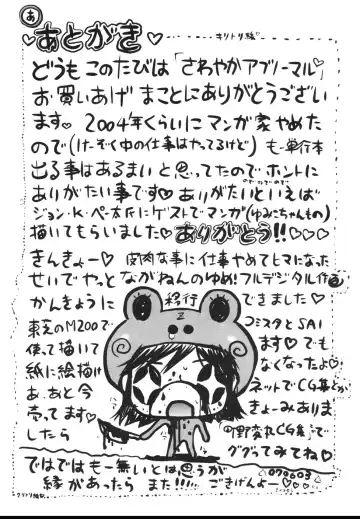 あ
あとがき
キリトリ線
どうもこのたびは「さわやかアブノーマル」
お買いあげ まことにありがとうござい
ます♡ 2004年くらいにマンガ家やめた
ので(けーぞく中の仕事はやってるけど) もー単行本
出る事はあるまいと思ってたのでホントに
ありがたい事です♡ ありがたいといえば
ジョン・K・ペー太氏にゲストでマンガ(ゆみこちゃんもの)
描いてもらいました♡ ありがとう!!♡♡♡
きんきょー♡ 皮肉な事に仕事やめてヒマになった
せいでやっと ながねんのゆめ!フルデジタル作画
かんきょうに 移行 できました♡
東芝のM200で コミスタとSAI
使って描いて ます♡ でも
紙に絵描け なくなったよ♡
あ、あと今 ネットでCG集とか
売ってます♡ きょーみありま
したら CG集」で
ググってみてね♡
ではではもー無いとは思うが 070603
縁があったら また!!!! ごきげんよー♡♡♡
キリトリ線